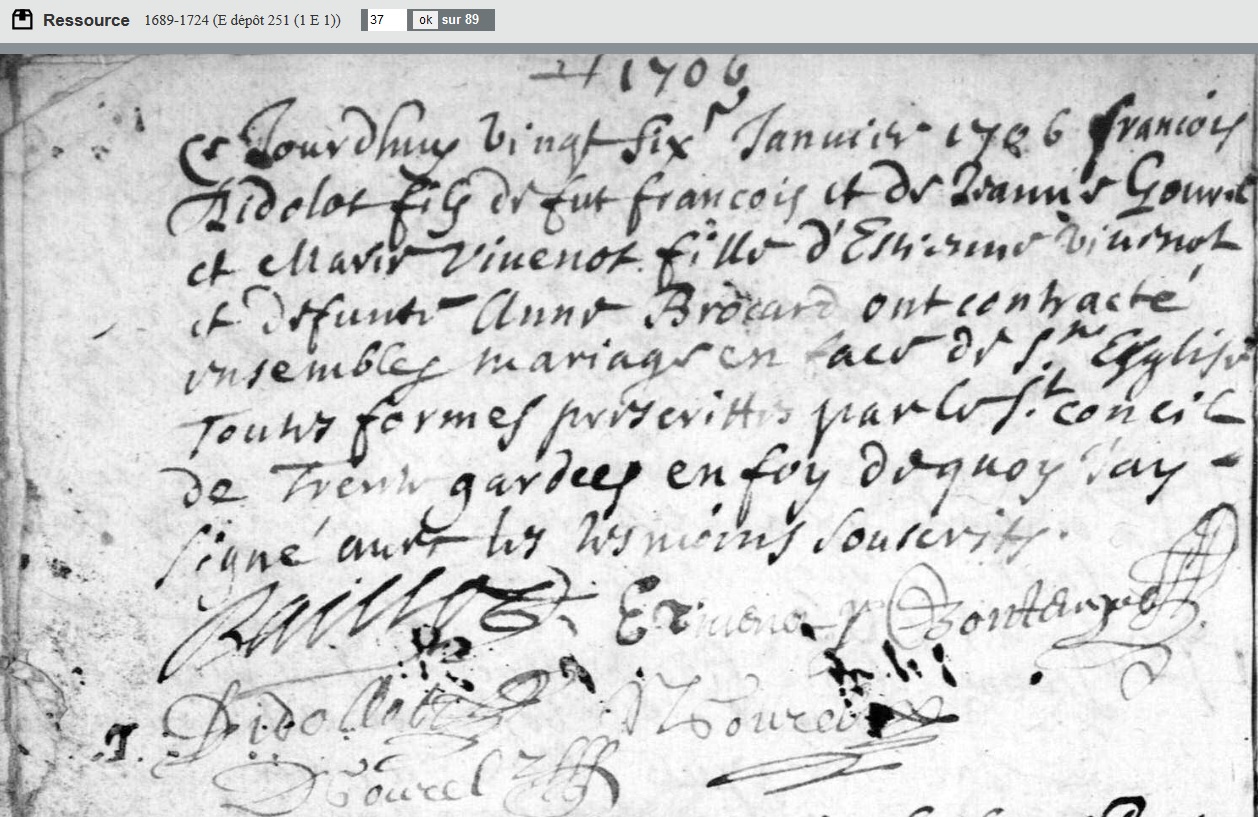 Ressource 1689-1724 (E dépôt 251 (1 E 1)) 37 ok sur 89
1706
Ce Jourdhuy vingt six Januier 1706 francois
Didolot fils de fut francois et de Jeanne Gourel
et Marie Viuenot fille d'Estienne Viuenot
et defunte Anne Brocard ont contracté
ensembles mariage en face de S.te Esglise
Toutes formes prescrittes par le S.t concil
de Trente gardees en foy dequoy J'ay
signé auec les tesmoins souscrits.
E Viuenot
Didollot Gourel
Gourel